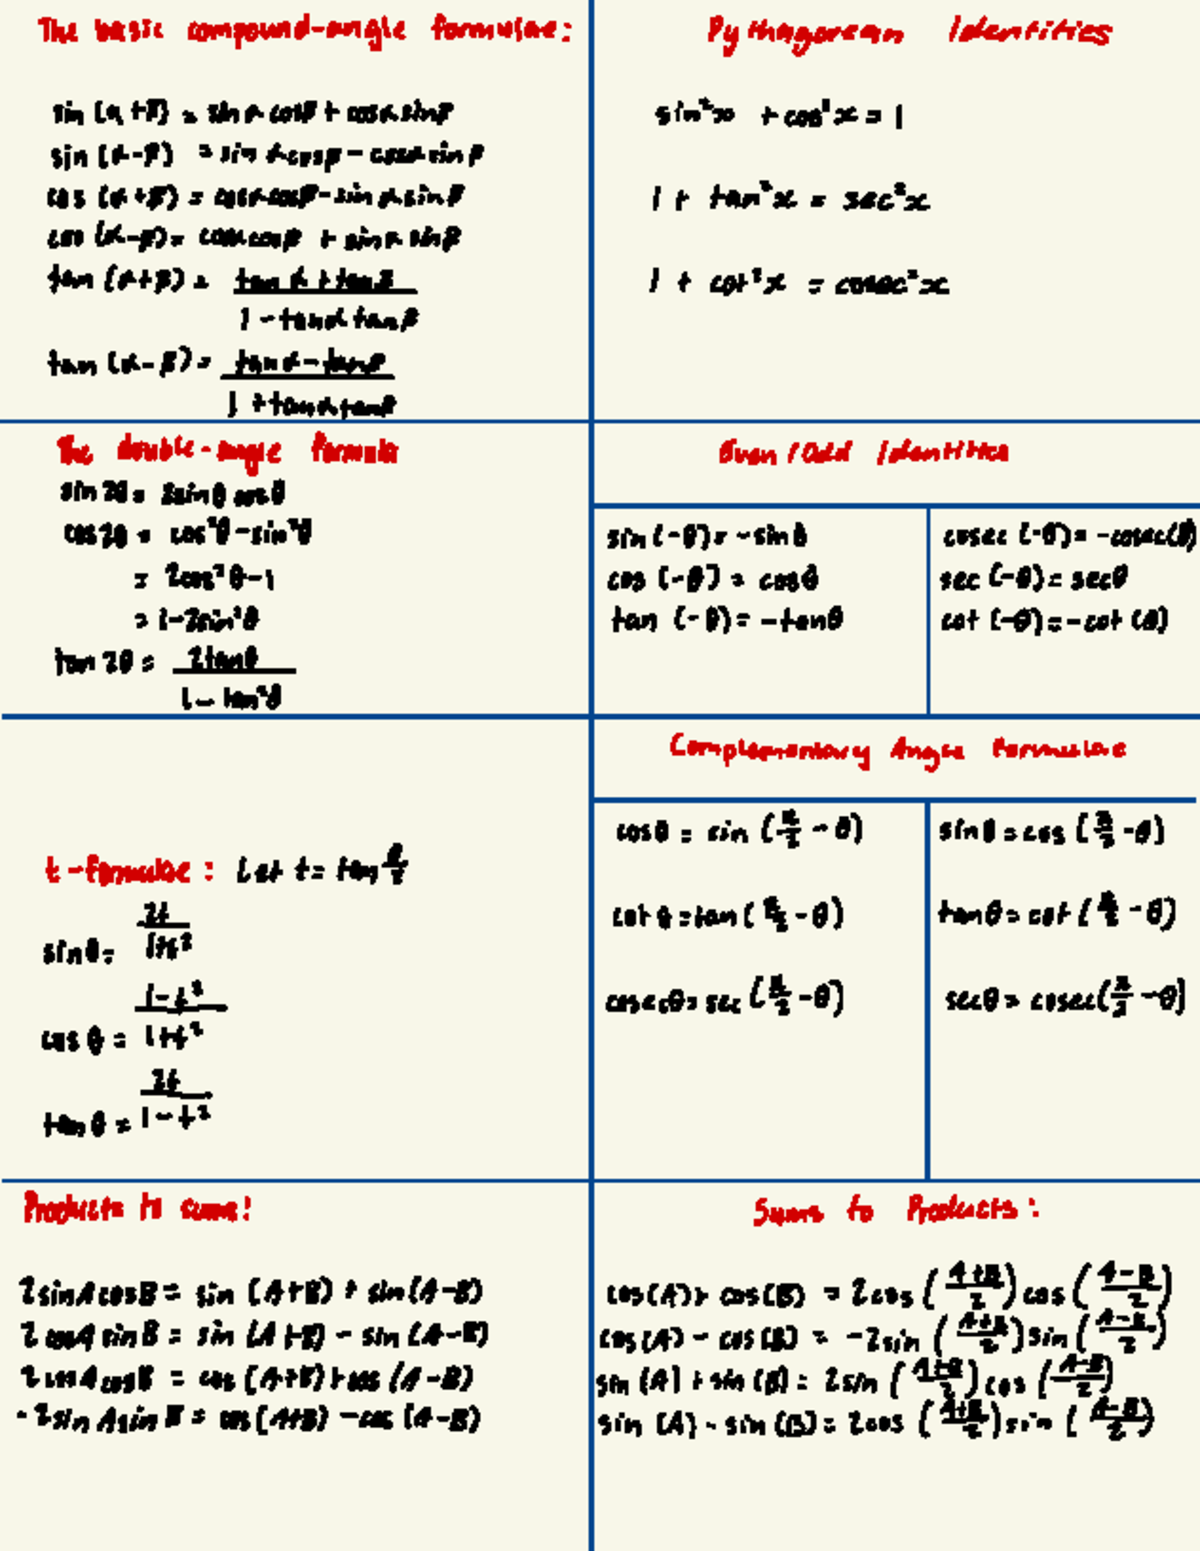 The basic compound-angle formulae:
sin (α+β) = sin α cosβ + cosα sinβ
sin (α-β) = sin α cosβ - cosα sin β
cos (α+β) = cosα cosβ - sin α sin β
cos (α-β) = cosα cosβ + sin α sinβ
tan (α+β) = tan α + tanβ / 1 - tanα tanβ
tan (α-β) = tan α - tanβ / 1 + tanα tanβ
Pythagorean Identities
sin²x + cos²x = 1
1 + tan²x = sec²x
1 + cot²x = cosec²x
The double-angle formula
sin 2θ = 2sinθ cosθ
cos2θ = cos²θ - sin²θ
= 2cos²θ-1
= 1-2sin²θ
tan 2θ = 2tanθ / 1 - tan²θ
Even / Odd Identities
sin (-θ) = -sinθ
cos (-θ) = cosθ
tan (-θ) = -tanθ
cosec (-θ) = -cosec(θ)
sec (-θ) = secθ
cot (-θ) = -cot (θ)
t-formulae: Let t = tan θ/2
sinθ = 2t / 1+t²
cos θ = 1-t² / 1+t²
tan θ = 2t / 1-t²
Complementary Angle Formulae
cosθ = sin (π/2 - θ)
cot θ = tan (π/2 - θ)
cosecθ = sec (π/2 - θ)
sinθ = cos (π/2 - θ)
tanθ = cot (π/2 - θ)
secθ = cosec(π/2 - θ)
Products to sums:
2sinAcosB = sin (A+B) + sin(A-B)
2 cosA sinB = sin (A+B) - sin (A-B)
2 cosAcosB = cos (A+B) + cos (A-B)
-2sin AsinB = cos (A+B) - cos (A-B)
Sums to Products:
cos(A) + cos(B) = 2cos (A+B/2) cos (A-B/2)
cos(A) - cos(B) = -2sin (A+B/2) sin (A-B/2)
sin (A) + sin (B) = 2sin (A+B/2) cos (A-B/2)
sin (A) - sin (B) = 2cos (A+B/2) sin (A-B/2)